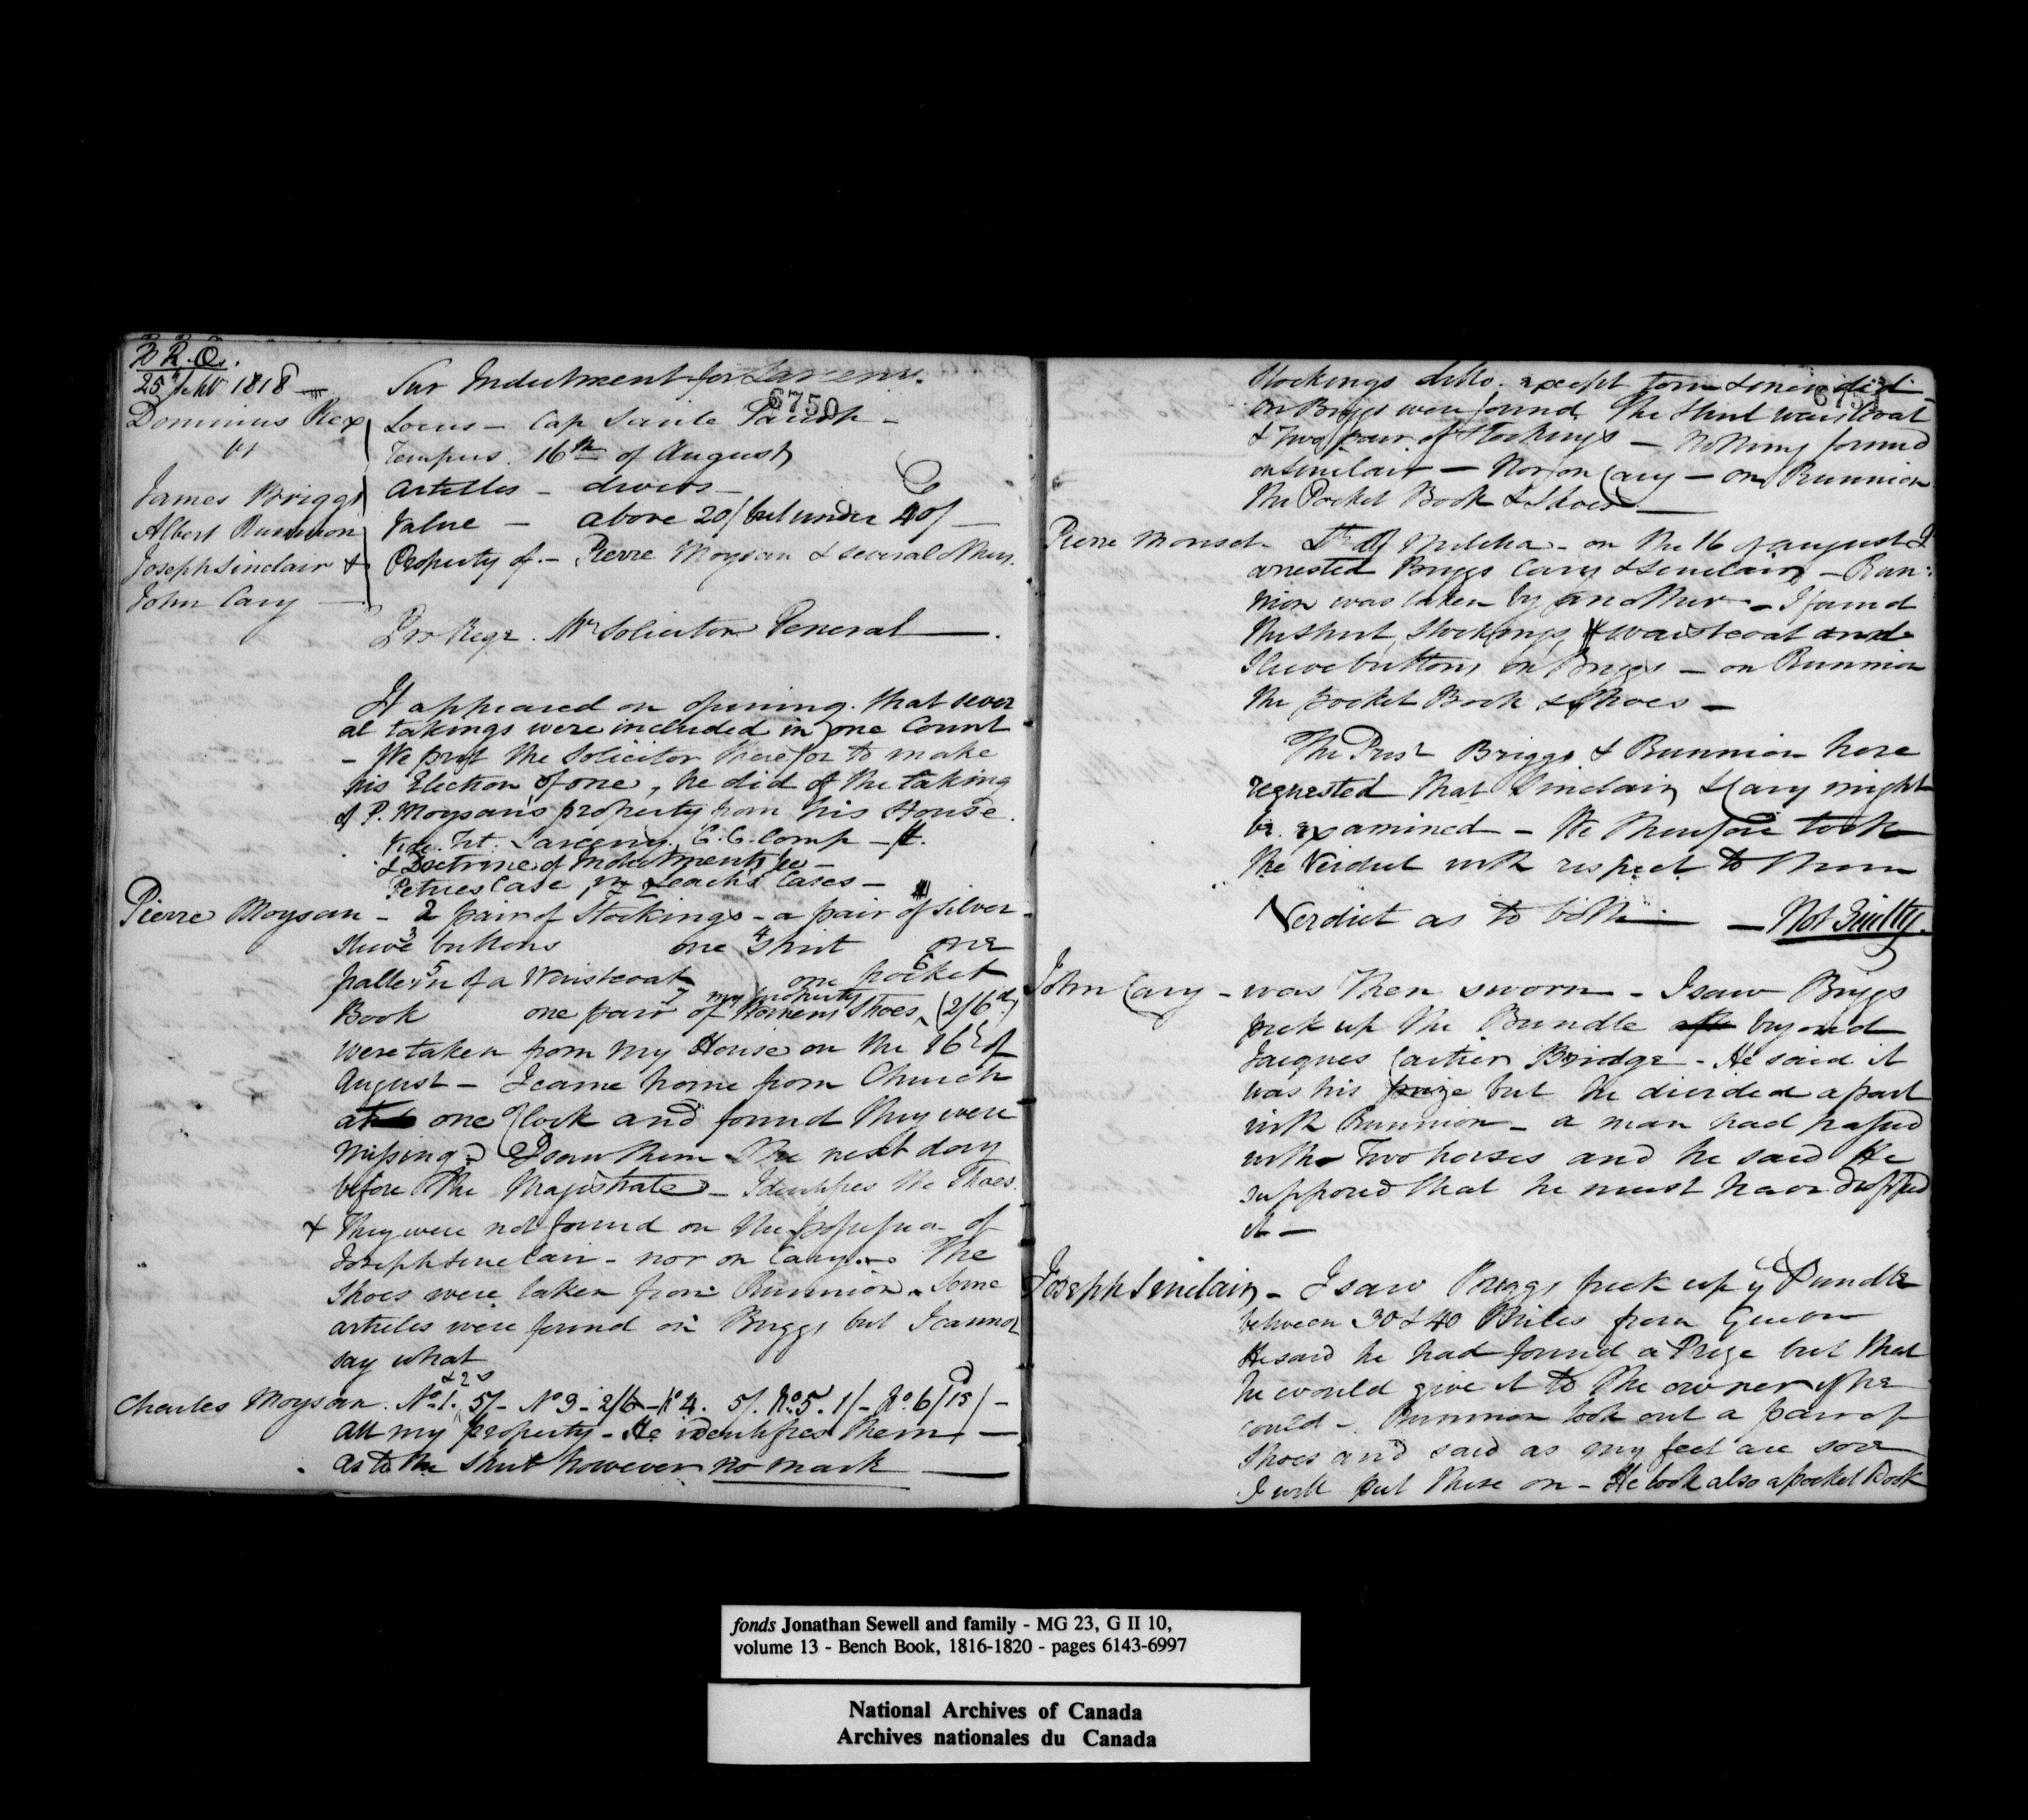 B R. Q.
25 Septr 1818 — Sur Indictment for Larceny.
6750
Dominus Rex Locus — Cap Sante Parish —
vs Tempus. 16th of August
James Briggs Articles — divers —
Albert Runnion Value — above 20/ but under 40/ —
Joseph Sinclair & Property of. — Pierre Moysan & several others.
John Cary —
Pro Rege. Mr Solicitor General —.
It appeared on opening. that sever
al takings were included in one Count
— We put the Solicitor therefor to make
his Election of one, he did of the taking
of P. Moysan's property from his House.
Vide. Tit: Larceny. C. C. Comp —
& Doctrine of Indictments
Case in Leach's Cases —
Pierre Moysan — 2 pair of Stockings — a pair of silver
3 4
sleeve buttons one shirt one
5 6
pattern of a Waistcoat one pocket
7 my property
Book one pair of Womens Shoes (2/6d)
were taken from my House on the 16 of
August — I came home from Church
at one Clock and found they were
missing. I saw them the next day
before the Magistrate — Identifies the Shoes.
+ They were not found on the possession of
Joseph Sinclair — nor on Cary. — The
Shoes were taken from Runnion. Some
articles were found on Briggs but I cannot
say what
& 2
Charles Moysan. No 1. 5/— No 3 — 2/6 — No 4. 5/. No 5. 1/— No 6/15/—
All my property — He identifies them —
As to the Shirt however no mark —
Stockings ditto. except torn
6751
On Briggs were found the Shirt waistcoat
& Two pair of Stockings — Nothing found
on Sinclair — Nor on Cary — on Runnion
the Pocket Book & Shoes —
Pierre of Militia — on the 16 of August I
arrested Briggs Cary & Sinclair — Run:
nion was taken by another — I found
the shirt, stockings, & waistcoat and
Sleeve buttons on Briggs — on Runnion
the pocket Book & Shoes —
The Prisr Briggs & Runnion here
requested that Sinclair & Cary might
be examined — We therefore took
the Verdict with respect to them
Verdict as to both — — Not Guilty.
John Cary — was then sworn — I saw Briggs
pick up the Bundle beyond
Jacques Cartier Bridge — He said it
was his prize but he divided a part
with Runnion — a man had passed
with Two horses and he said He
supposed that he must have dropped
it —
Joseph Sinclair — I saw Briggs pick up ye Bundle
between 30 & 40 Miles from Quebec
He said he had found a Prize but that
he would give it to the owner if he
could — Runnion took out a pair of
Shoes and said as my feet are sore
I will put these on — He took also a pocket Book
fonds Jonathan Sewell and family - MG 23, G II 10,
volume 13 - Bench Book, 1816-1820 - pages 6143-6997
National Archives of Canada
Archives nationales du Canada